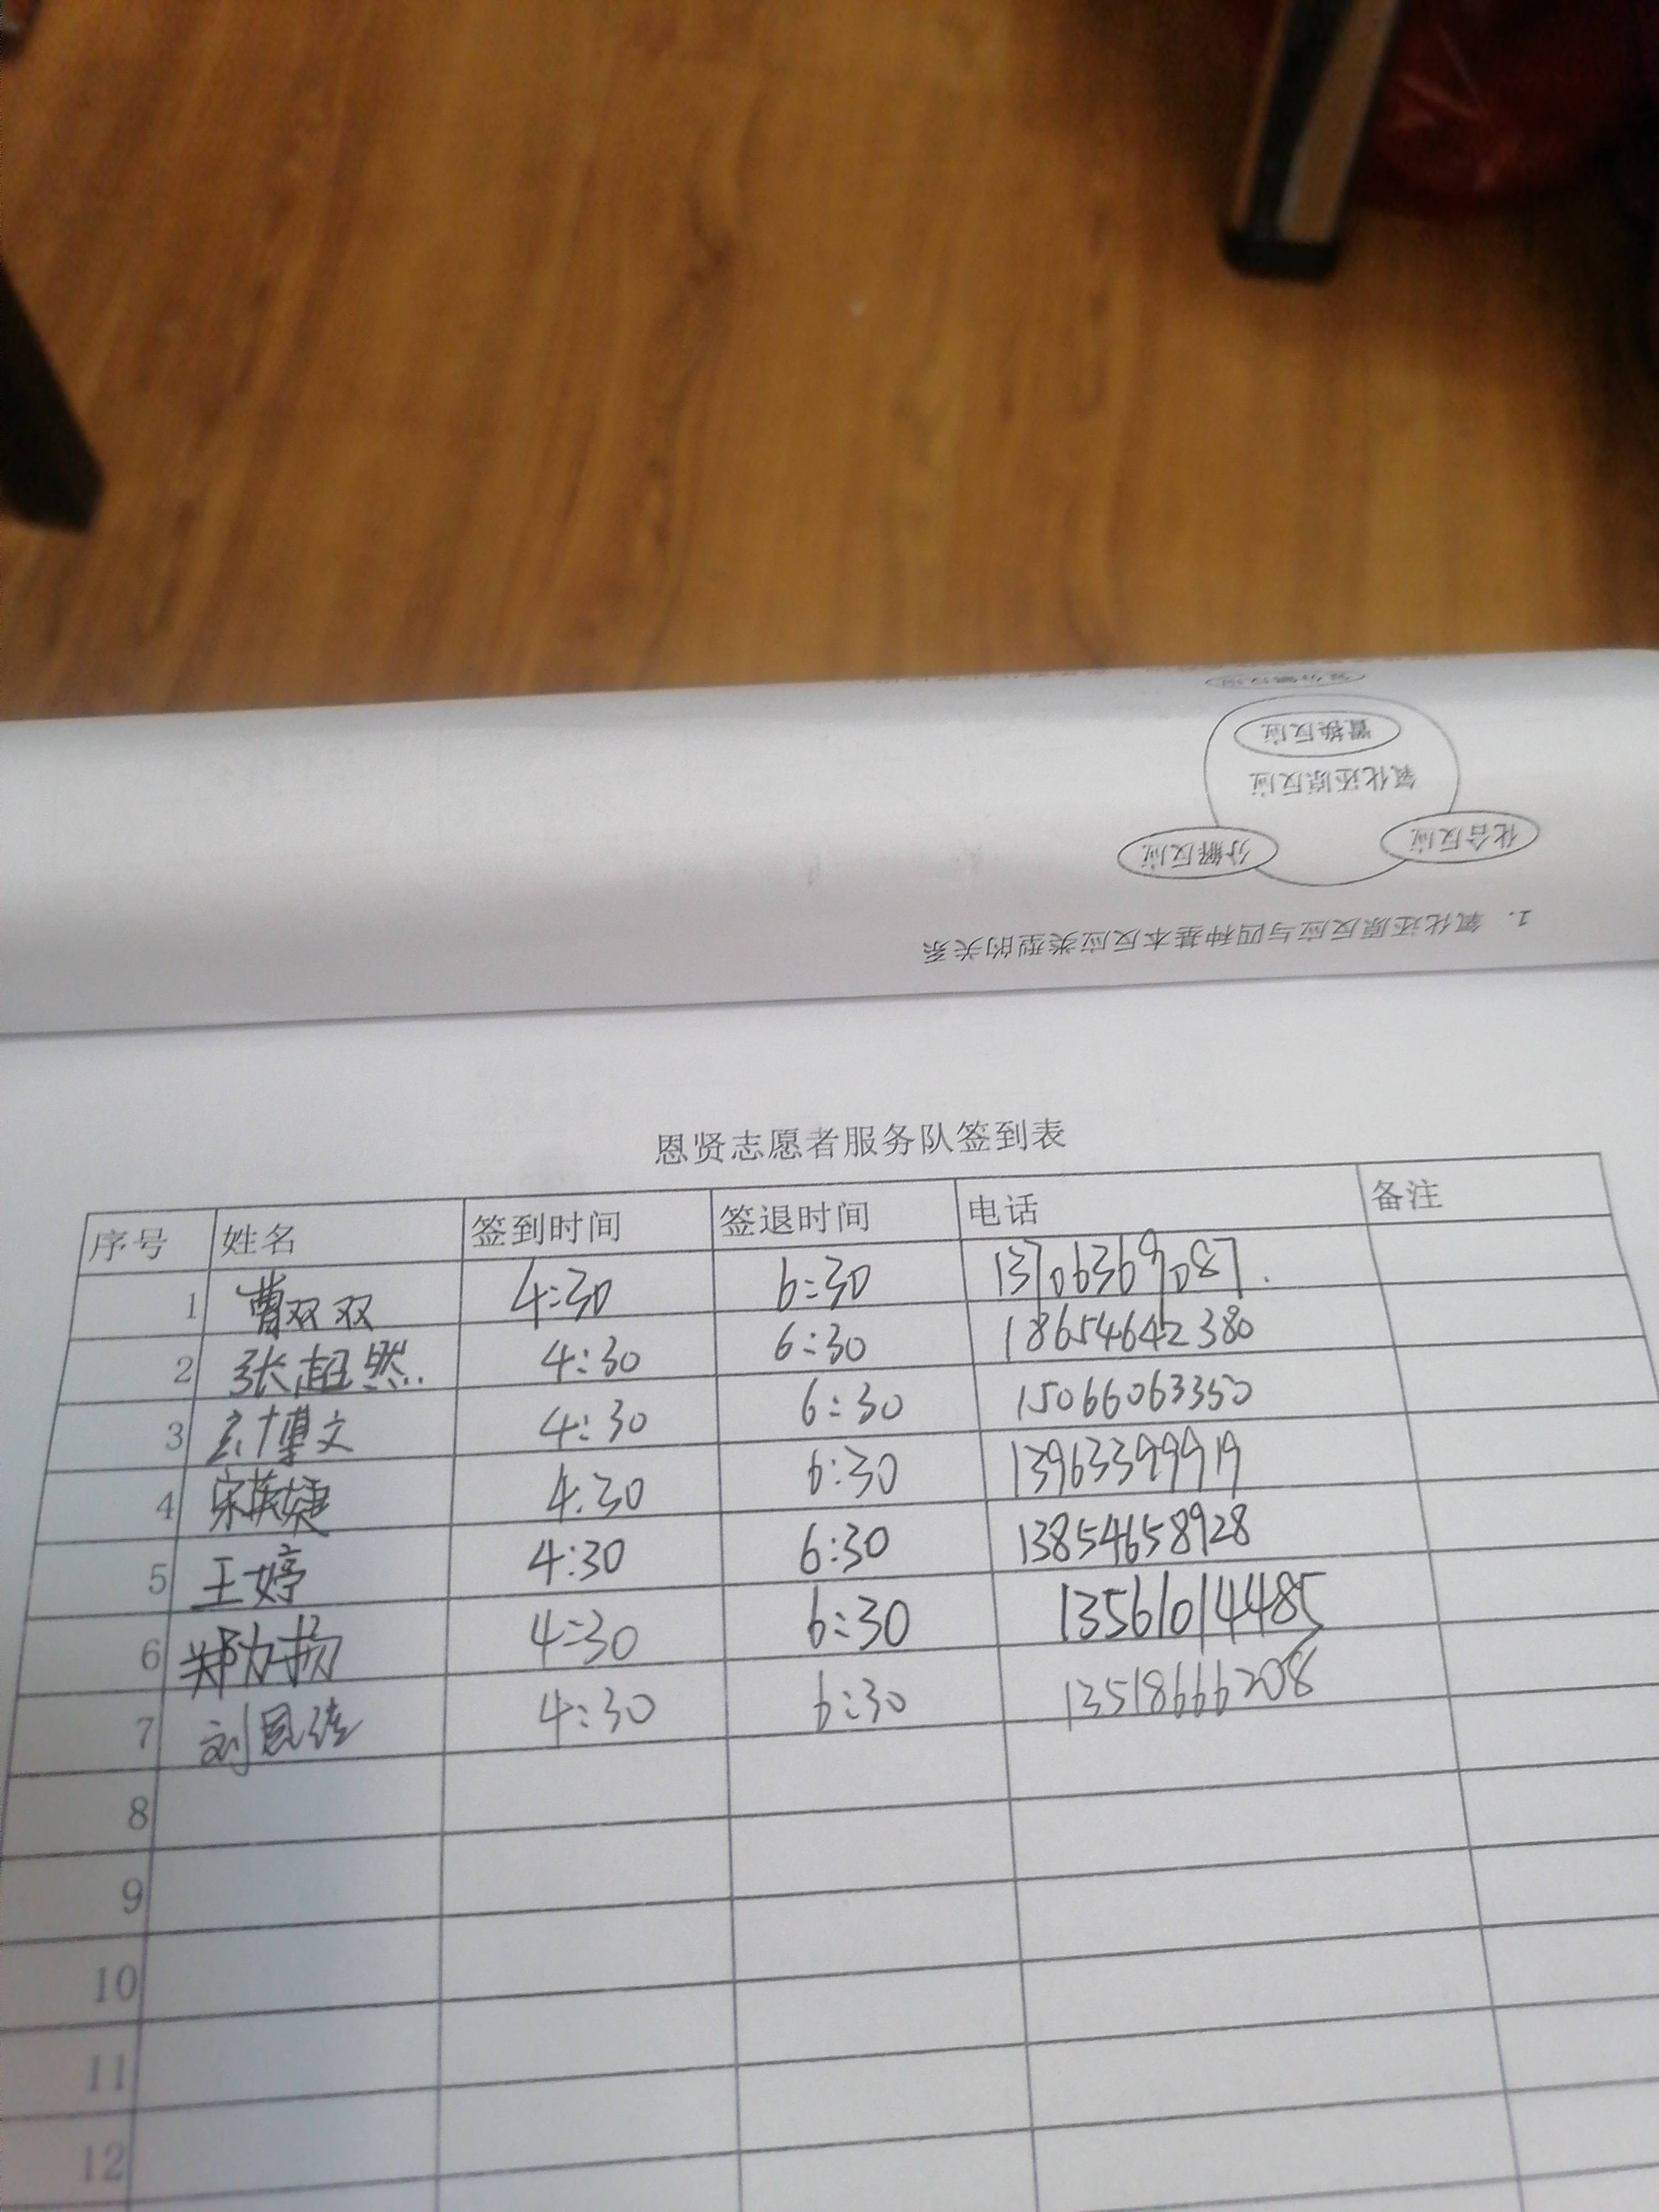 置换反应
氧化还原反应
分解反应 化合反应
1. 氧化还原反应与四种基本反应类型的关系
恩贤志愿者服务队签到表
序号 姓名 签到时间 签退时间 电话 备注
1 曹双双 4:30 6:30 13706369087.
2 张超然. 4:30 6:30 18654642380
3 玄博文 4:30 6:30 15066063350
4 宋英婕 4:30 6:30 13963399919
5 王婷 4:30 6:30 13854658928
6 郑力扬 4:30 6:30 13561014485
7 刘恩 4:30 6:30 13518666208
8
9
10
11
12